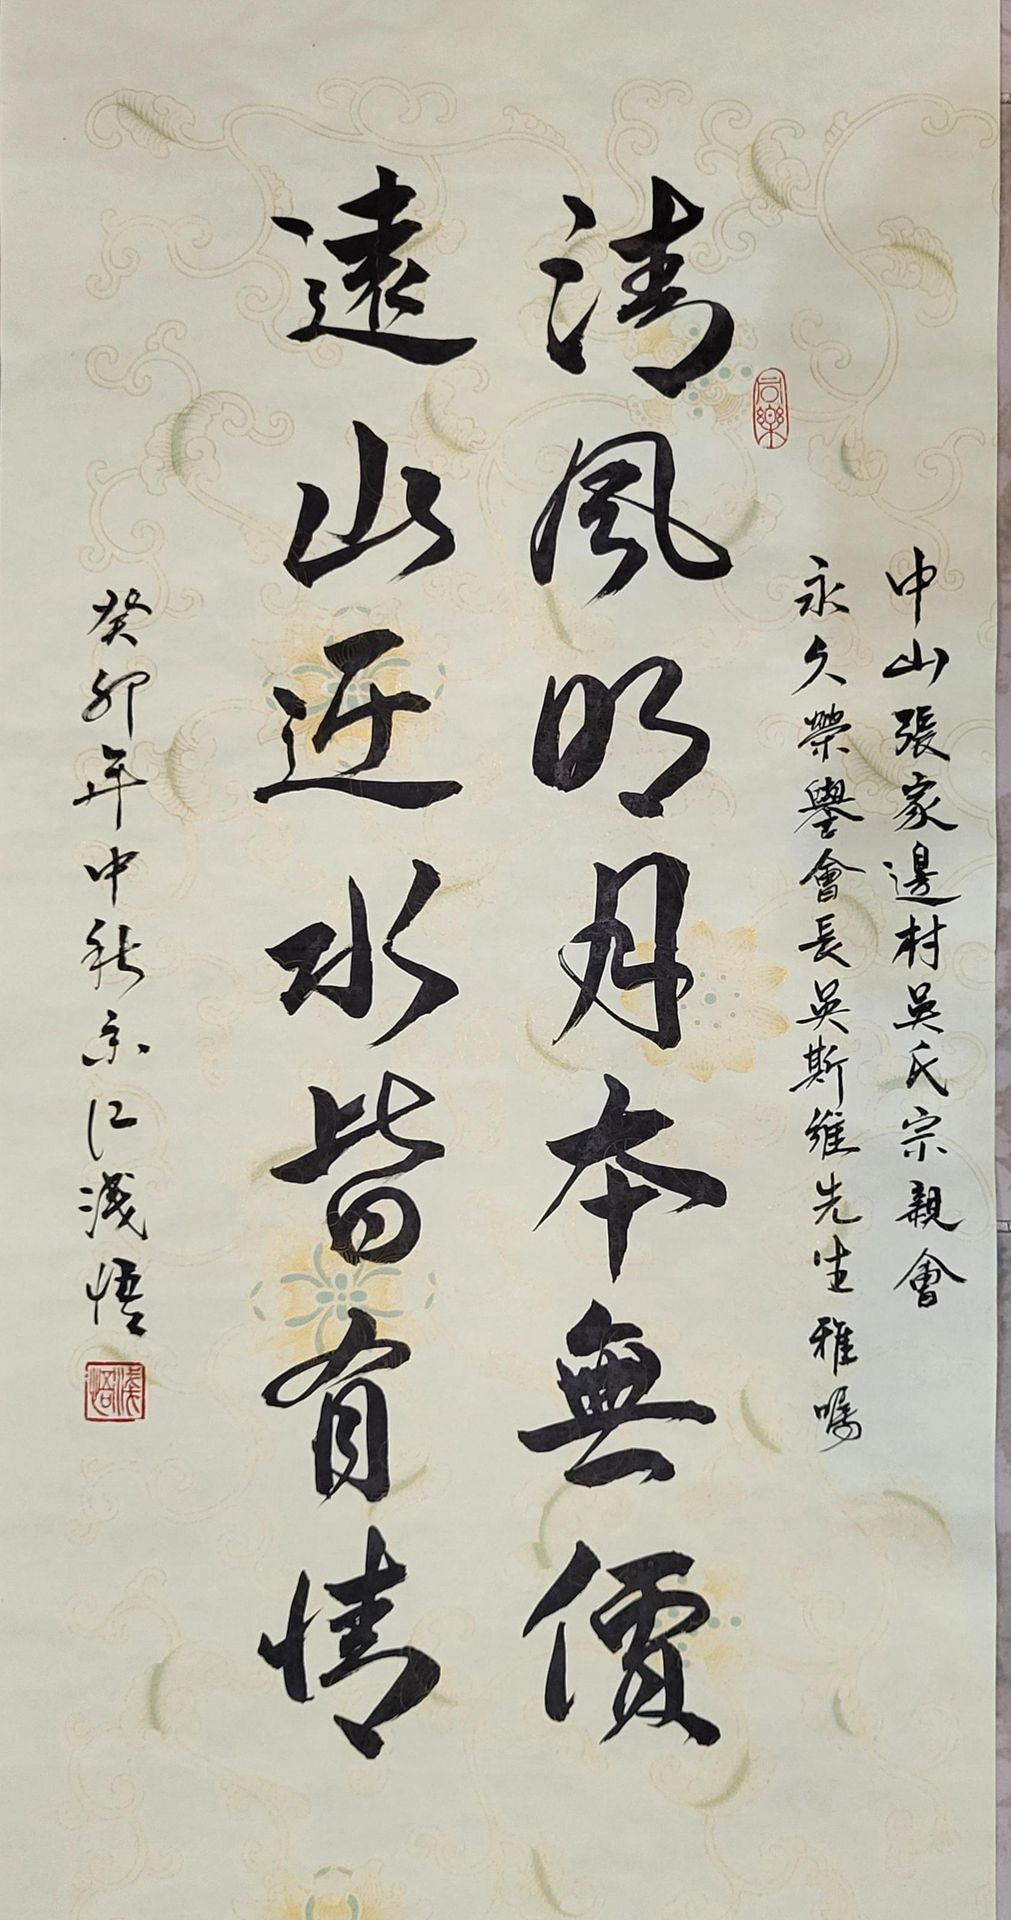 中山張家邊村吳氏宗親會
永久榮譽會長吳斯維先生雅囑
同樂
清風明月本無價
遠山近水皆有情
癸卯年中秋京江淺悟
淺悟